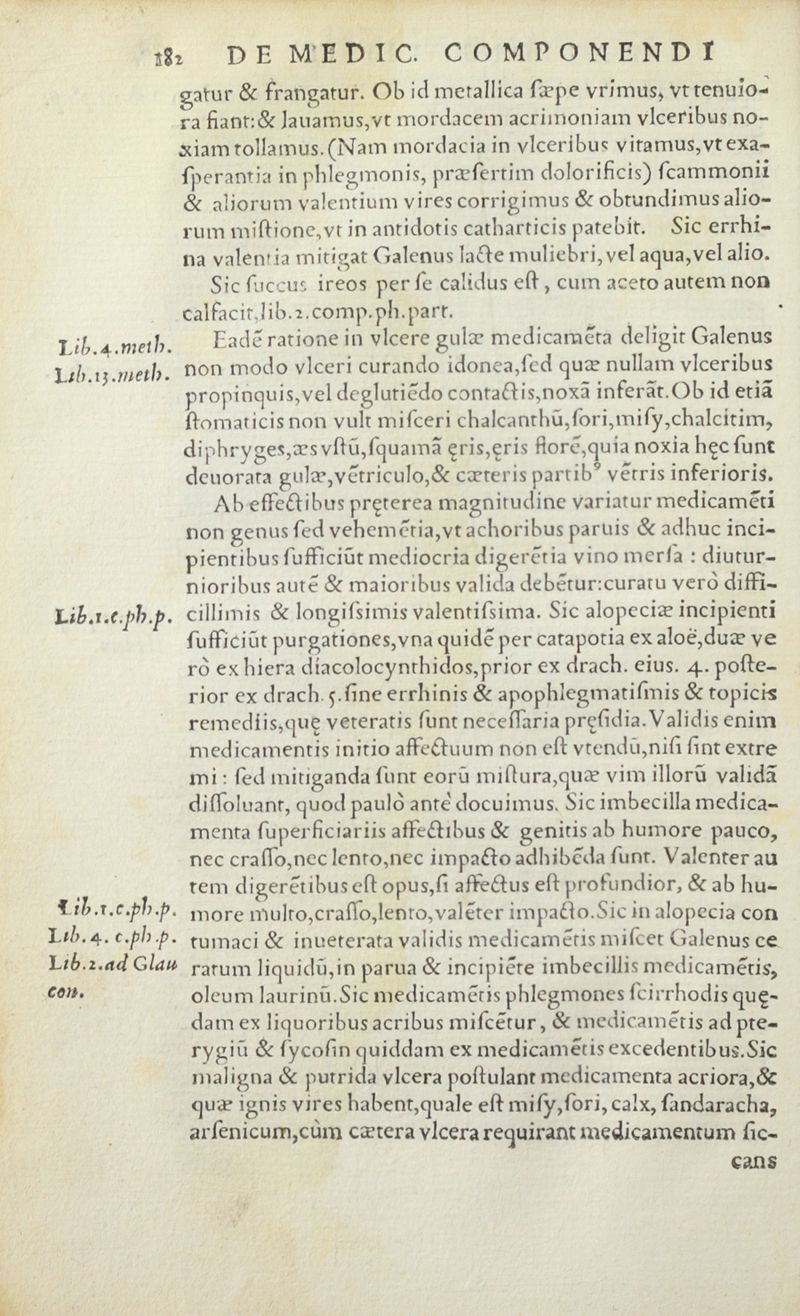 182 DE MEDIC. COMPONENDI
gatur & frangatur. Ob id metallica sæpe vrimus, vt tenuio-
ra fiant:& lauamus,vt mordacem acrimoniam vlceribus no-
xiam tollamus.(Nam mordacia in vlceribus vitamus,vt exa-
sperantia in phlegmonis, præsertim dolorificis) scammonii
& aliorum valentium vires corrigimus & obtundimus alio-
rum mistione,vt in antidotis catharticis patebit. Sic errhi-
na valentia mitigat Galenus lacte muliebri,vel aqua,vel alio.
Sic succus ireos per se calidus est, cum aceto autem non
calfacit,lib.2.comp.ph.part.
Lib.4.meth. Eadẽ ratione in vlcere gulæ medicamẽta deligit Galenus
Lib.13.meth. non modo vlceri curando idonea,sed quæ nullam vlceribus
propinquis,vel deglutiẽdo contactis,noxã inferãt.Ob id etiã
stomaticis non vult misceri chalcanthũ,sori,misy,chalcitim,
diphryges,æs vstũ,squamã ęris,ęris florẽ,quia noxia hęc sunt
deuorata gulæ,vẽtriculo,& cæteris partibꝰ vẽtris inferioris.
Ab effectibus pręterea magnitudine variatur medicamẽti
non genus sed vehemẽtia,vt achoribus paruis & adhuc inci-
pientibus sufficiũt mediocria digerẽtia vino mersa : diutur-
nioribus autẽ & maioribus valida debẽtur:curatu verò diffi-
Lib.1.c.ph.p. cillimis & longissimis valentissima. Sic alopeciæ incipienti
sufficiũt purgationes,vna quidẽ per catapotia ex aloë,duæ ve
rò ex hiera diacolocynthidos,prior ex drach. eius. 4. poste-
rior ex drach.5.sine errhinis & apophlegmatismis & topicis
remediis,quę veteratis sunt necessaria pręsidia.Validis enim
medicamentis initio affectuum non est vtendũ,nisi sint extre
mi : sed mitiganda sunt eorũ mistura,quæ vim illorũ validã
dissoluant, quod paulò antè docuimus. Sic imbecilla medica-
menta superficiariis affectibus & genitis ab humore pauco,
nec crasso,nec lento,nec impacto adhibẽda sunt. Valenter au
tem digerẽtibus est opus,si affectus est profundior, & ab hu-
Lib.1.c.ph.p. more multo,crasso,lento,valẽter impacto.Sic in alopecia con
Lib.4. c.ph.p. tumaci & inueterata validis medicamẽtis miscet Galenus ce
Lib.2.ad Glau ratum liquidũ,in parua & incipiẽte imbecillis medicamẽtis,
con. oleum laurinũ.Sic medicamẽtis phlegmones scirrhodis quę-
dam ex liquoribus acribus miscẽtur, & medicamẽtis ad pte-
rygiũ & sycosin quiddam ex medicamẽtis excedentibus.Sic
maligna & putrida vlcera postulant medicamenta acriora,&
quæ ignis vires habent,quale est misy,sori, calx, sandaracha,
arsenicum,cùm cætera vlcera requirant medicamentum sic-
cans